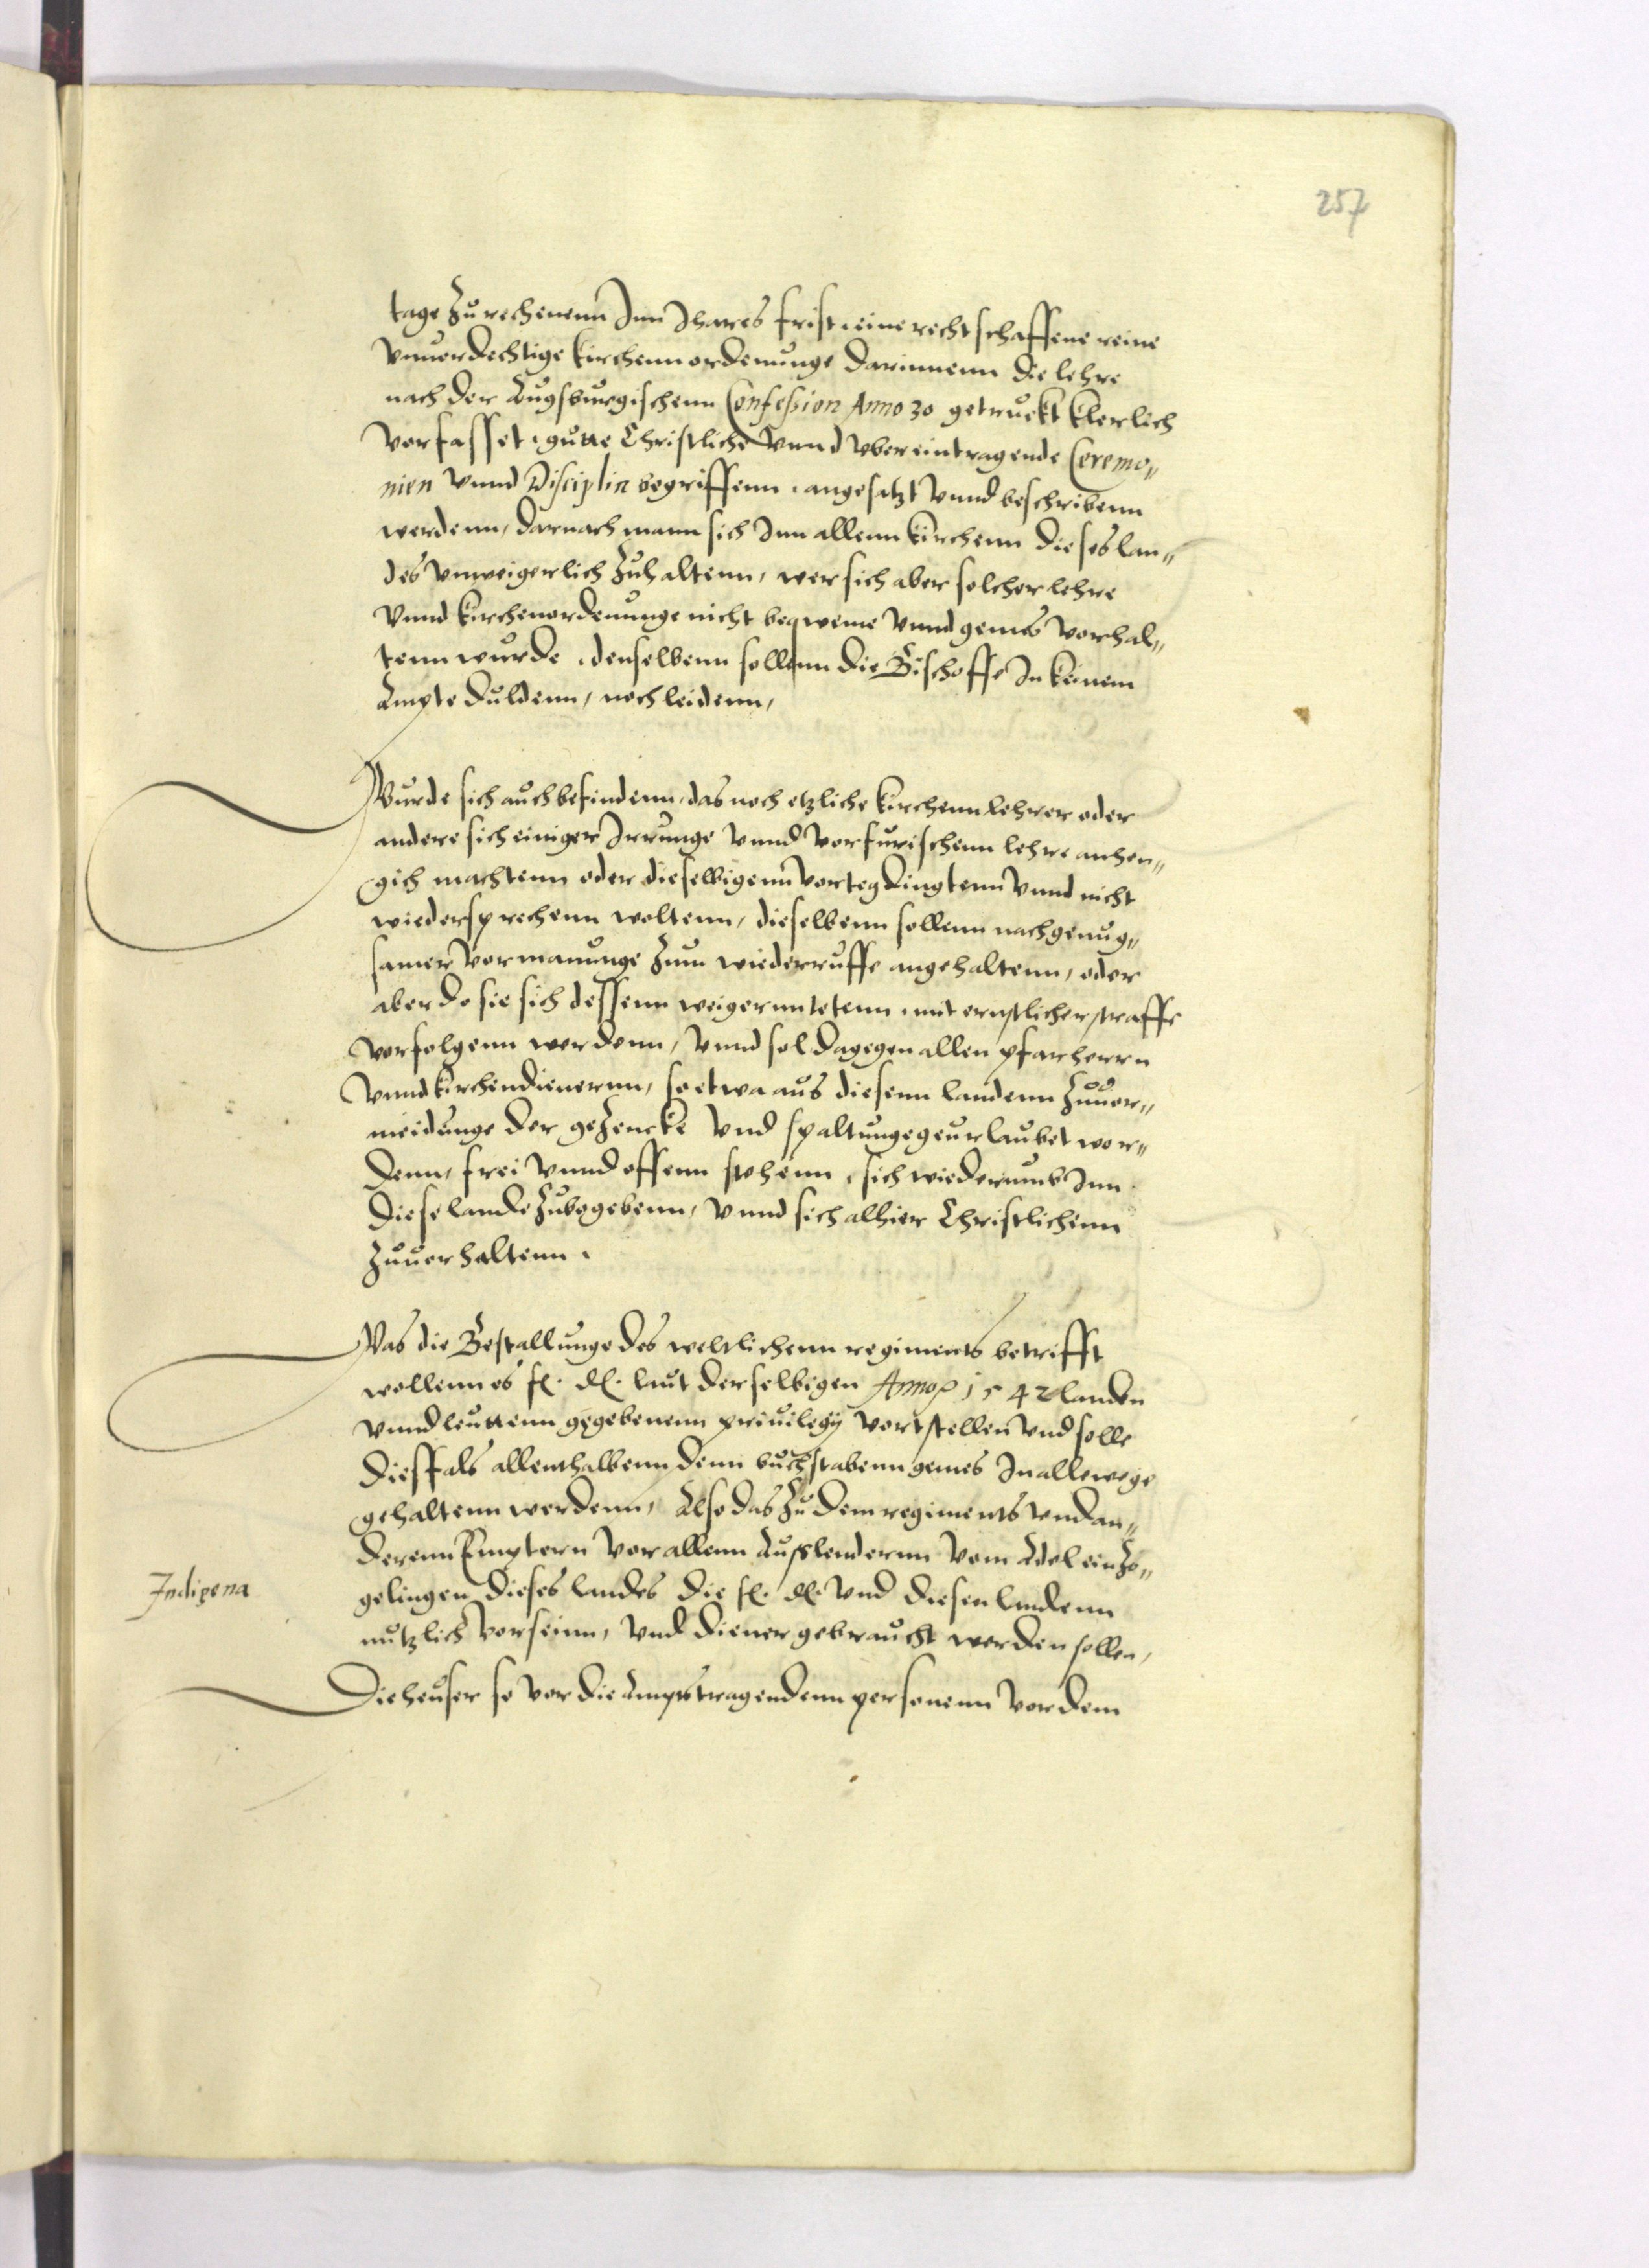 257
tage zu rechenenn Inn Ihares frist, eine rechtschaffene reine
vnuordechtige kirchenn ordenunge darinnenn die lehre
nach der Augsburgischenn Confession Anno 30 getruckt klerlich
vorfasset, gutte Christliche vnnd vbereintragende Ceremo„
nien vnnd Disciplin begriffenn, angesatzt vnnd beschribenn
werdenn, darnach mann sich Inn allenn kirchenn dieses lan„
des vnweigerlich zuhaltenn, wer sich aber solcher lehre
vnnd kirchenordenunge nicht beqweme vnnd gemes vorhal„
tenn wurde, denselbenn sollenn die Bischoffe In keinem
Ampte duldenn, noch leidenn,
Wurde sich auch befindenn, das noch etzliche kirchenn lehrer oder
andere sich einiger Irrunge vnnd vorfurischenn lehre anhen„
gich machtenn oder dieselbigenn vortegdingtenn vnnd nicht
wiedersprechenn woltenn, dieselbenn sollenn nach genug„
samer vormanunge zum wiederruffe angehaltenn, oder
aber do sie sich dessenn weigernntetenn, mit ernstlicher straffe
vorfolgenn werdenn, vnnd sol dagegen allen pfarherrn
vnnd kirchendienernn, so etwa aus diesenn landenn zuuor„
meidunge der gezencke vnd spaltunge geurlaubet wor„
denn, frei vnnd offenn stehenn, sich wiederumb Inn
diese lande zubegebenn, vnnd sich alhier Christlichenn
zuuorhaltenn.
Was die Bestallunge des weltlichenn regiments betrifft
wollenn es f. d. laut derselbigen Anno 1542 landen
vnnd leuttenn gegebenenn priuilegij vortstellen vnd solle
diesfals allenthalbenn denn buchstabenn gemes In allewege
gehaltenn werdenn, Also das zu dem regiments vnd an„
derenn Emptern vor allenn Auslendernn vom Adel einzo„
gelingen dieses landes die f. d. vnd diesen landenn
nutzlich vorseinn, vnd diener gebraucht werden sollen,
Indigena
Die heuser so vor die Ampts tragendenn personenn vor dem